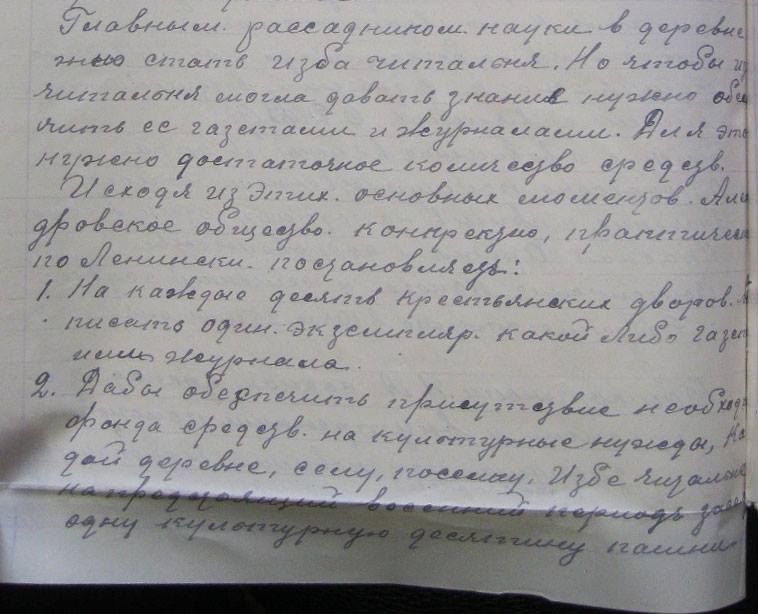 Главным рассадником науки в деревне
жно стать изба читальня. Но чтобы из
читальня могла давать знания нужно обес
чить ее газетами и журналами. Для это
нужно достаточное количезво средзв.
Исходя из этих. основных моментов. Алек
дровское общезво. конкрекно, практически
по Ленински. постановилезь:
1. На каждые десять крестьянских дворов.
писать один. экземпляр. какой либо газет
или журнала.
2. Дабы обезпечить присутзвие необходи
фонда средзв. на культурные нужды, Ка
дой деревне, селу, поселку, Избе читальне
на предстоящий весенний период засея
одну культурную десятину пашни